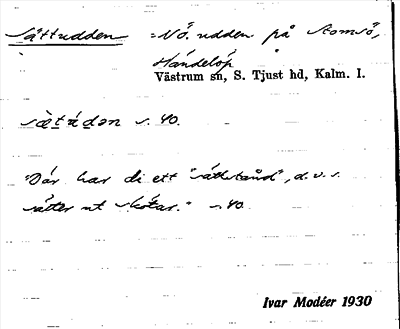 Sättudden = NÖ. udden på Stomsö,
Händelöp
Västrum sn, S. Tjust hd, Kalm. l.
s. 40.
"Där har di ett "sättstånd", d.v.s.
sätter ut skötar." s. 40.
Ivar Modéer 1930